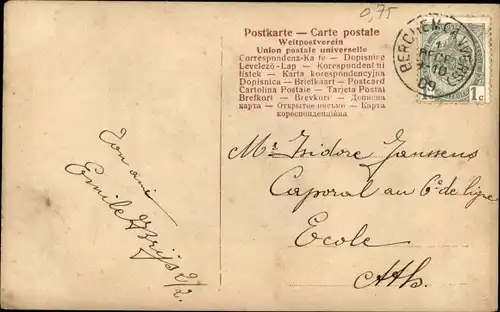 0,75
Postkarte – Carte postale
Weltpostverein
Union postale universelle
Correspondenz-Karte – Dopisnice
Levelező-Lap – Korespondentní
lístek – Karta korespondencyjna
Dopisnica – Briefkaart – Postcard
Cartolina Postale – Tarjeta Postal
Brefkort – Brevkort – Дописна
карта – Открытое письмо – Карта
кореспонденційна
BERCHEM (ANVERS)
09
1c
Ton ami
Emile
Mr Isidore Janssens
Caporal au 6e de ligne
Ecole
Ath.